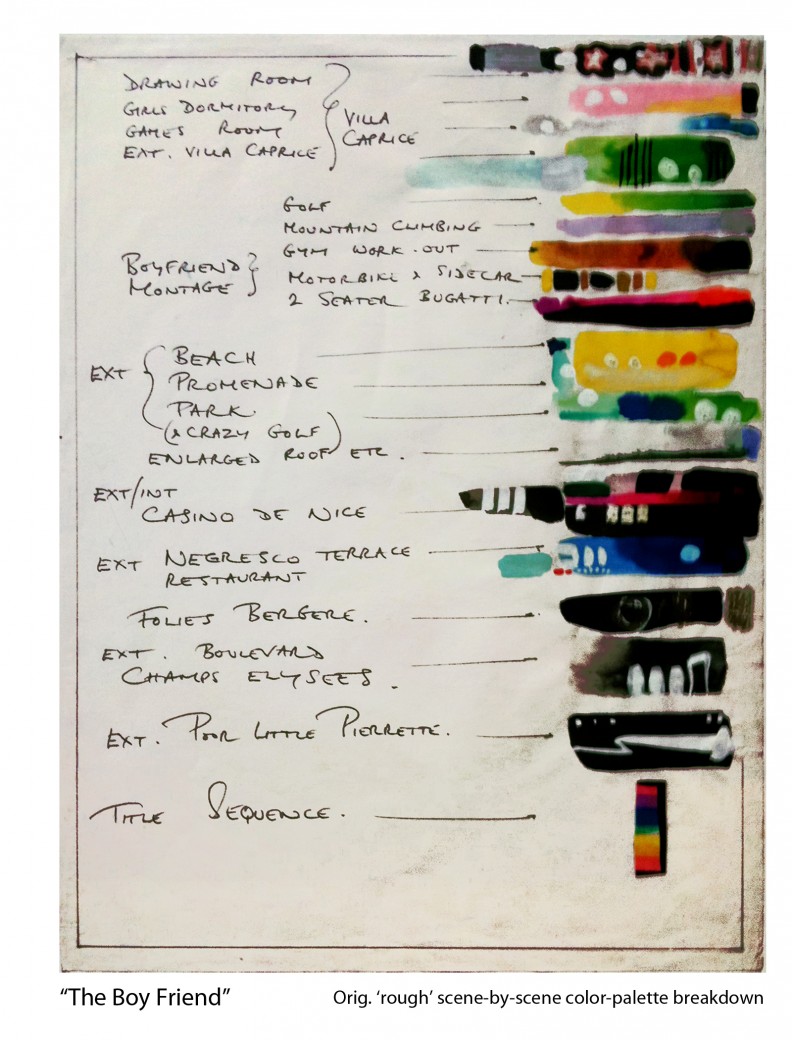 DRAWING ROOM
GIRLS DORMITORY
GAMES ROOM
EXT. VILLA CAPRICE
VILLA
CAPRICE
GOLF
MOUNTAIN CLIMBING
GYM WORK-OUT
MOTORBIKE & SIDECAR
2 SEATER BUGATTI.
BOYFRIEND
MONTAGE
EXT
BEACH
PROMENADE
PARK
(& CRAZY GOLF)
ENLARGED ROOF ETC.
EXT/INT
CASINO DE NICE
EXT NEGRESCO TERRACE
RESTAURANT
FOLIES BERGERE.
EXT. BOULEVARD
CHAMPS ELYSEES.
EXT. POOR LITTLE PIERRETTE.
TITLE SEQUENCE.
“The Boy Friend”
Orig. ‘rough’ scene-by-scene color-palette breakdown